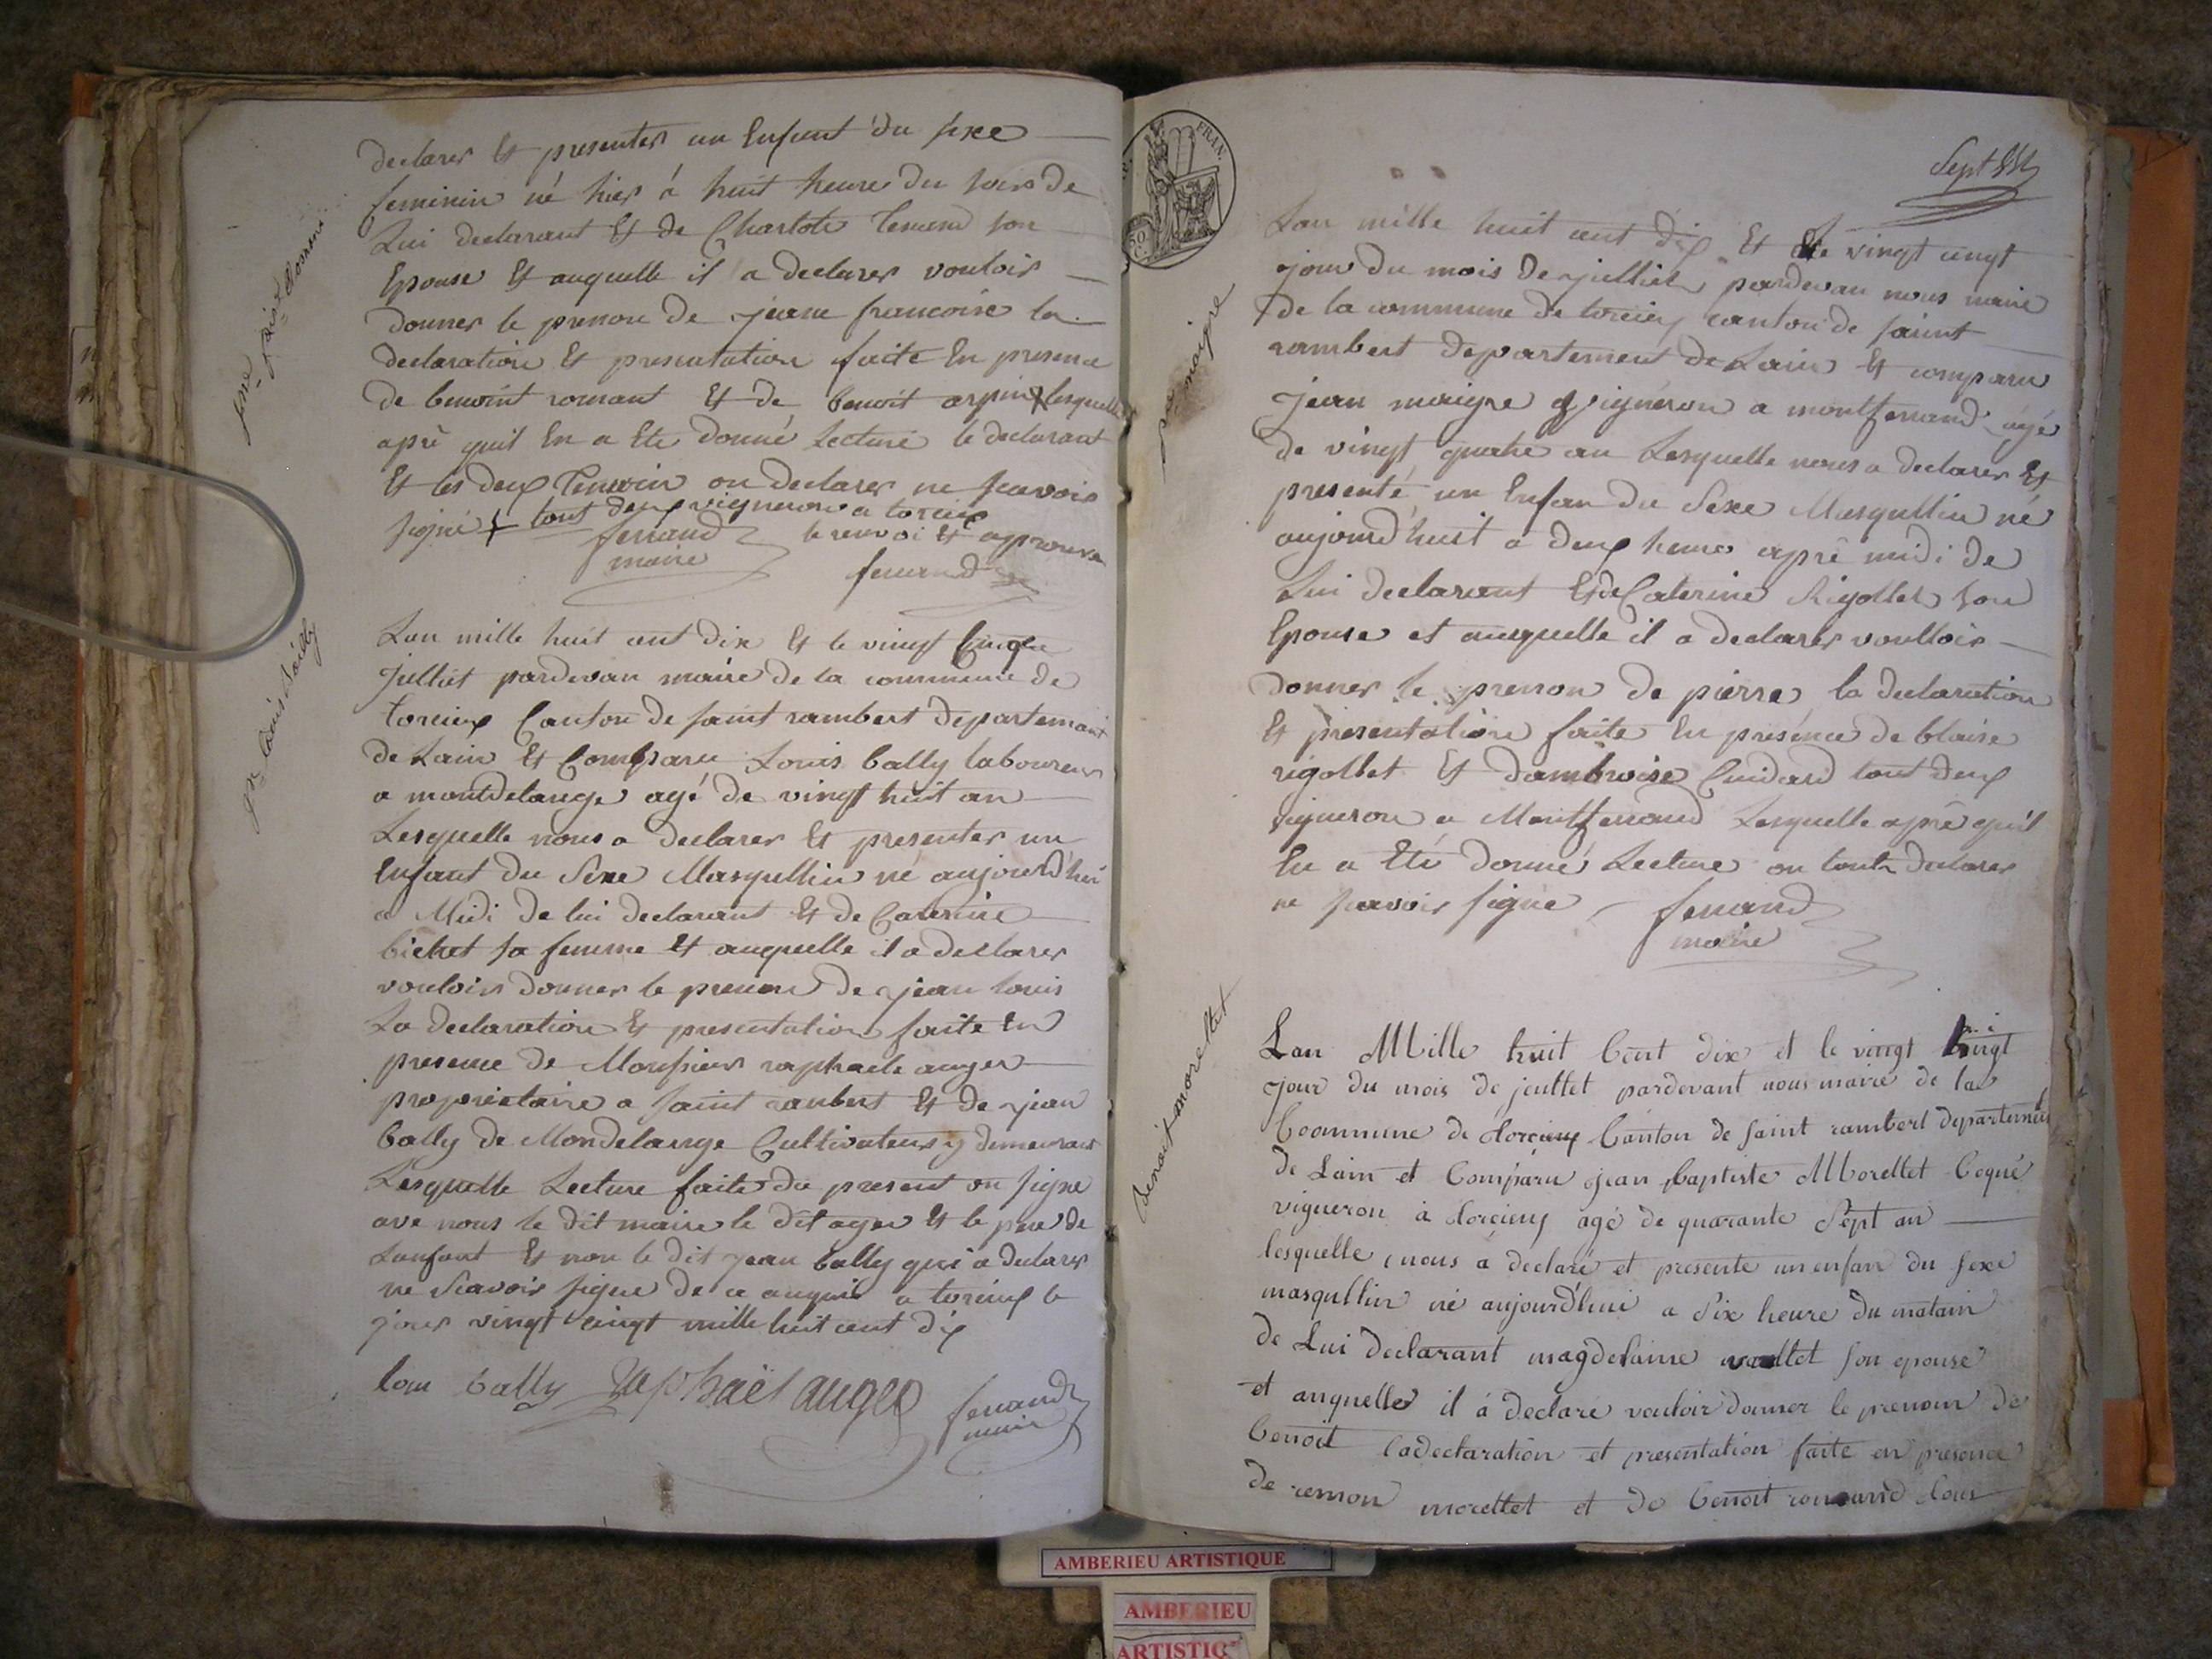 declarer Et presenter un Enfant du sexe
feminin né hier a huit heure du soir de
Lui declarant Et de Charlote Tenand son
Epouse Et auquelle il a declarer vouloir
donner le prenon de jeane francoise la
declaration Et presentation faite En presence
de benoint romant Et de benoit arpin lesquelle
aprê quil En a Ete donné Lecture le declarant
Et les deux Temoin on declarer ne scavoir
signé + tout deux vigneron a torcieu
ferrand le renvoi Et approuve
maire ferrand
jne fcoise
jn louis bailly
Lan mille huit cent dix Et le vingt Cinque
Julliet pardevan maire de la commune de
torcieux Canton de saint rambert departemant
de Lain Et Comparu Louis bally laboureur
a montdelange agé de vingt huit an
Lesquelle nous a declarer Et presenter un
Enfant du Sexe Masqullin né aujourd'hui
a Midi de lui declarant Et de Caterine
bichet sa femme Et auquelle il a declarer
vouloir donner le prenon de jean louis
La declaration Et presentation faite En
presence de Monsieur raphaele auger
proprietaire a saint rambert Et de jean
bally de Mondelange Cultivateur y demeurant
Lesquelle Lecture faite du present on signe
ave nous le dit maire le dit auger Et le pere de
Lanfant Et non le dit jean bally qui a declarer
ne Scavoir signe de ce enquis a torcieux le
jour vingt cinqt mille huit cent dix
loui bally Raphaël auger ferrand
maire
FRAN.
Sept
Lan mille huit cent dix Et le vingt cinqt
jour du mois de julliet pardevan nous maire
de la commune de torcieu canton de saint
rambert departement de Lain Et comparu
jean maigre vigneron a montferrand agé
de vingt quatre an Lesquelle nous a declarer Et
presenté un Enfan du Sexe Masqullin né
aujourd'huit a deux heure aprê midi de
Lui declarant Et de Caterine Rigollet son
Epouse et auquelle il a declarer voulloir
donner le prenon de pierre la declaration
Et presentation faite En presence de blaise
rigollet Et dambroise Cuidard tout deux
vigneron a Montferrand Lesquelle aprê quil
En a Eté donné Lecture on tout declarer
ne scavoir signe ferrand
maire
pre maigre
benoit morellet
Lan Mille huit Cent dix et le vingt
jour du mois de jeullet pardevant nous maire de la
Coommune de torcieux Canton de saint rambert departement
de Lain et Comparu jean baptiste Morellet Coqué
vigneron à torcieux agé de quarante Sept an
lesquelle nous á declaré et presente un enfan du sexe
masqullin né aujourd'hui a Six heure du matain
de Lui declarant magdelaine son epouse
et auquelle il á declare vouloir donner le prenom de
benoit la declaration et presentation faite en presence
de remon morellet et de benoit romand tous
AMBERIEU ARTISTIQUE
AMBERIEU
ARTISTIQ